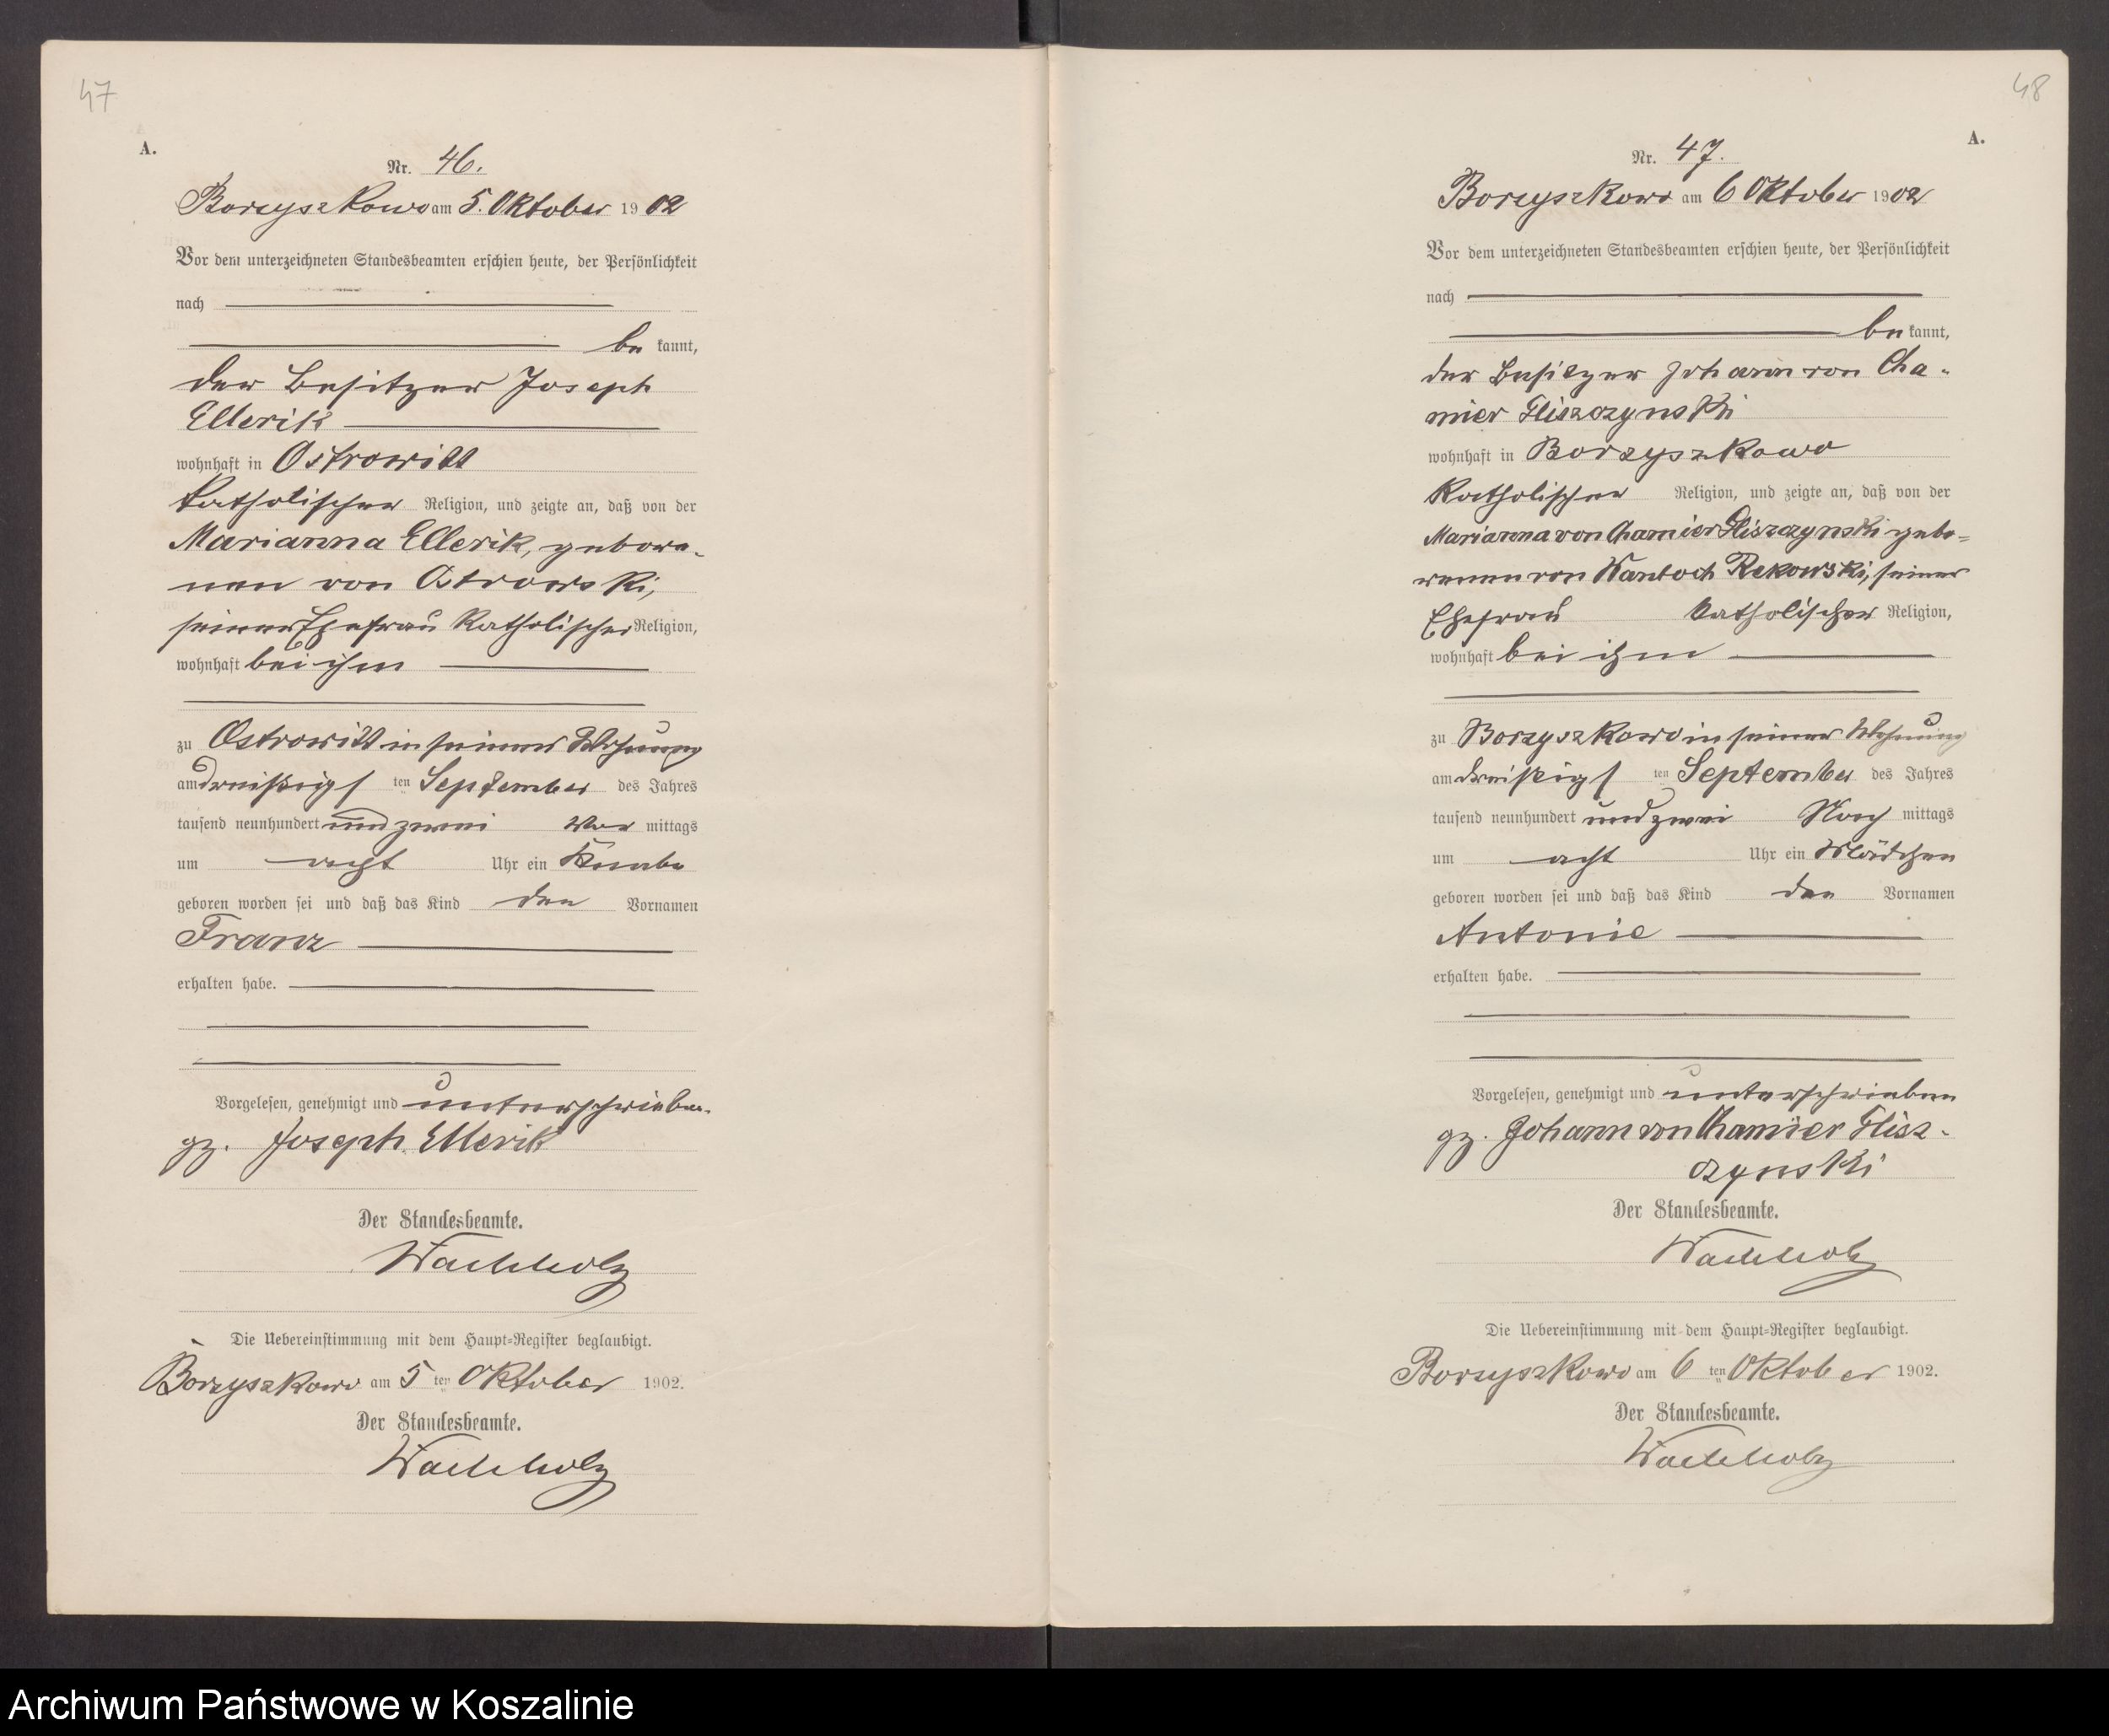 47
A.
Nr. 46.
Borzyszkowo am 5. Oktober 1902
Vor dem unterzeichneten Standesbeamten erschien heute, der Persönlichkeit
nach
bekannt,
der Besitzer Joseph
Ellerik
wohnhaft in Ostrowitt
katholischer Religion, und zeigte an, daß von der
Marianna Ellerik, gebore-
nen von Ostrowski,
seiner Ehefrau katholischer Religion,
wohnhaft bei ihm
zu Ostrowitt in seiner Wohnung
am dreißigsten September des Jahres
tausend neunhundert und zwei Vormittags
um acht Uhr ein Knabe
geboren worden sei und daß das Kind den Vornamen
Franz
erhalten habe.
Vorgelesen, genehmigt und unterschrieben.
gz. Joseph Ellerik
Der Standesbeamte.
Wachholz
Die Uebereinstimmung mit dem Haupt-Register beglaubigt.
Borzyszkowo am 5ten Oktober 1902.
Der Standesbeamte.
Wachholz
48
A.
Nr. 47.
Borzyszkowo am 6 Oktober 1902
Vor dem unterzeichneten Standesbeamten erschien heute, der Persönlichkeit
nach
bekannt,
der Besitzer Johann von Cha-
mier Gliszczynski
wohnhaft in Borzyszkowo
katholischer Religion, und zeigte an, daß von der
Marianna von Chamier Gliszczynski gebo-
renen von Wantoch Rekowski, seiner
Ehefrau katholischer Religion,
wohnhaft bei ihm
zu Borzyszkowo in seiner Wohnung
am dreißigsten September des Jahres
tausend neunhundert und zwei Nachmittags
um acht Uhr ein Mädchen
geboren worden sei und daß das Kind den Vornamen
Antonie
erhalten habe.
Vorgelesen, genehmigt und unterschrieben
gz. Johann von Chamier Glisz-
czynski
Der Standesbeamte.
Wachholz
Die Uebereinstimmung mit dem Haupt-Register beglaubigt.
Borzyszkowo am 6ten Oktober 1902.
Der Standesbeamte.
Wachholz
Archiwum Państwowe w Koszalinie